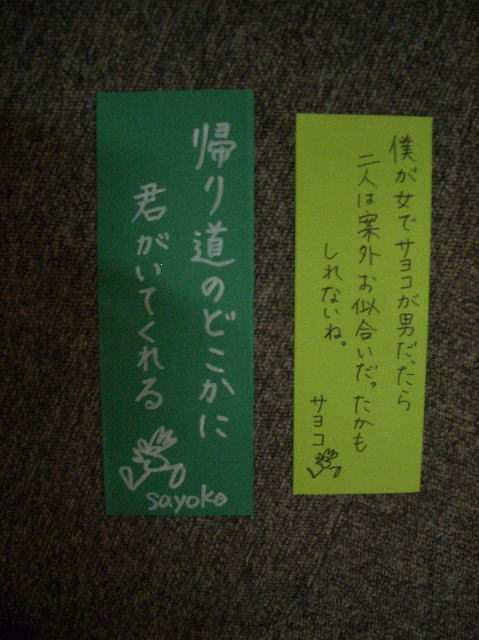 帰り道のどこかに
君がいてくれる
sayoko
僕が女でサヨコが男だったら
二人は案外お似合いだったかも
しれないね。
サヨコ